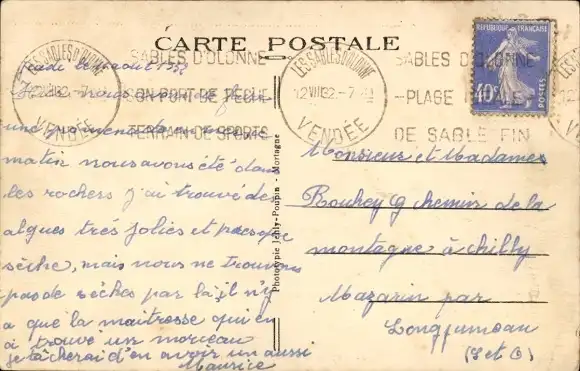 CARTE POSTALE
REPUBLIQUE FRANÇAISE
40c
POSTES
LES SABLES D'OLONNE
VENDÉE
SABLES D'OLONNE
SON PORT DE PÊCHE
TERRAIN DE SPORTS
LES SABLES D'OLONNE
12 VIII 32
VENDÉE
SABLES D'OLONNE
PLAGE
DE SABLE FIN
une promenade en
matin nous avons été dans
les rochers j'ai trouvé des
algues très jolies et presque
sèche, mais nous ne trouvons
pas de sèches par là, il n'y
a que la maitresse qui en
a trouvé un morceau
je tâcherai d'en avoir un aussi
Maurice
Phototypie Jehly-Poupin - Mortagne
Monsieur et Madame
Bouhey 9 chemin de la
montagne à Chilly
Mazarin par
Longjumeau
(S et O)